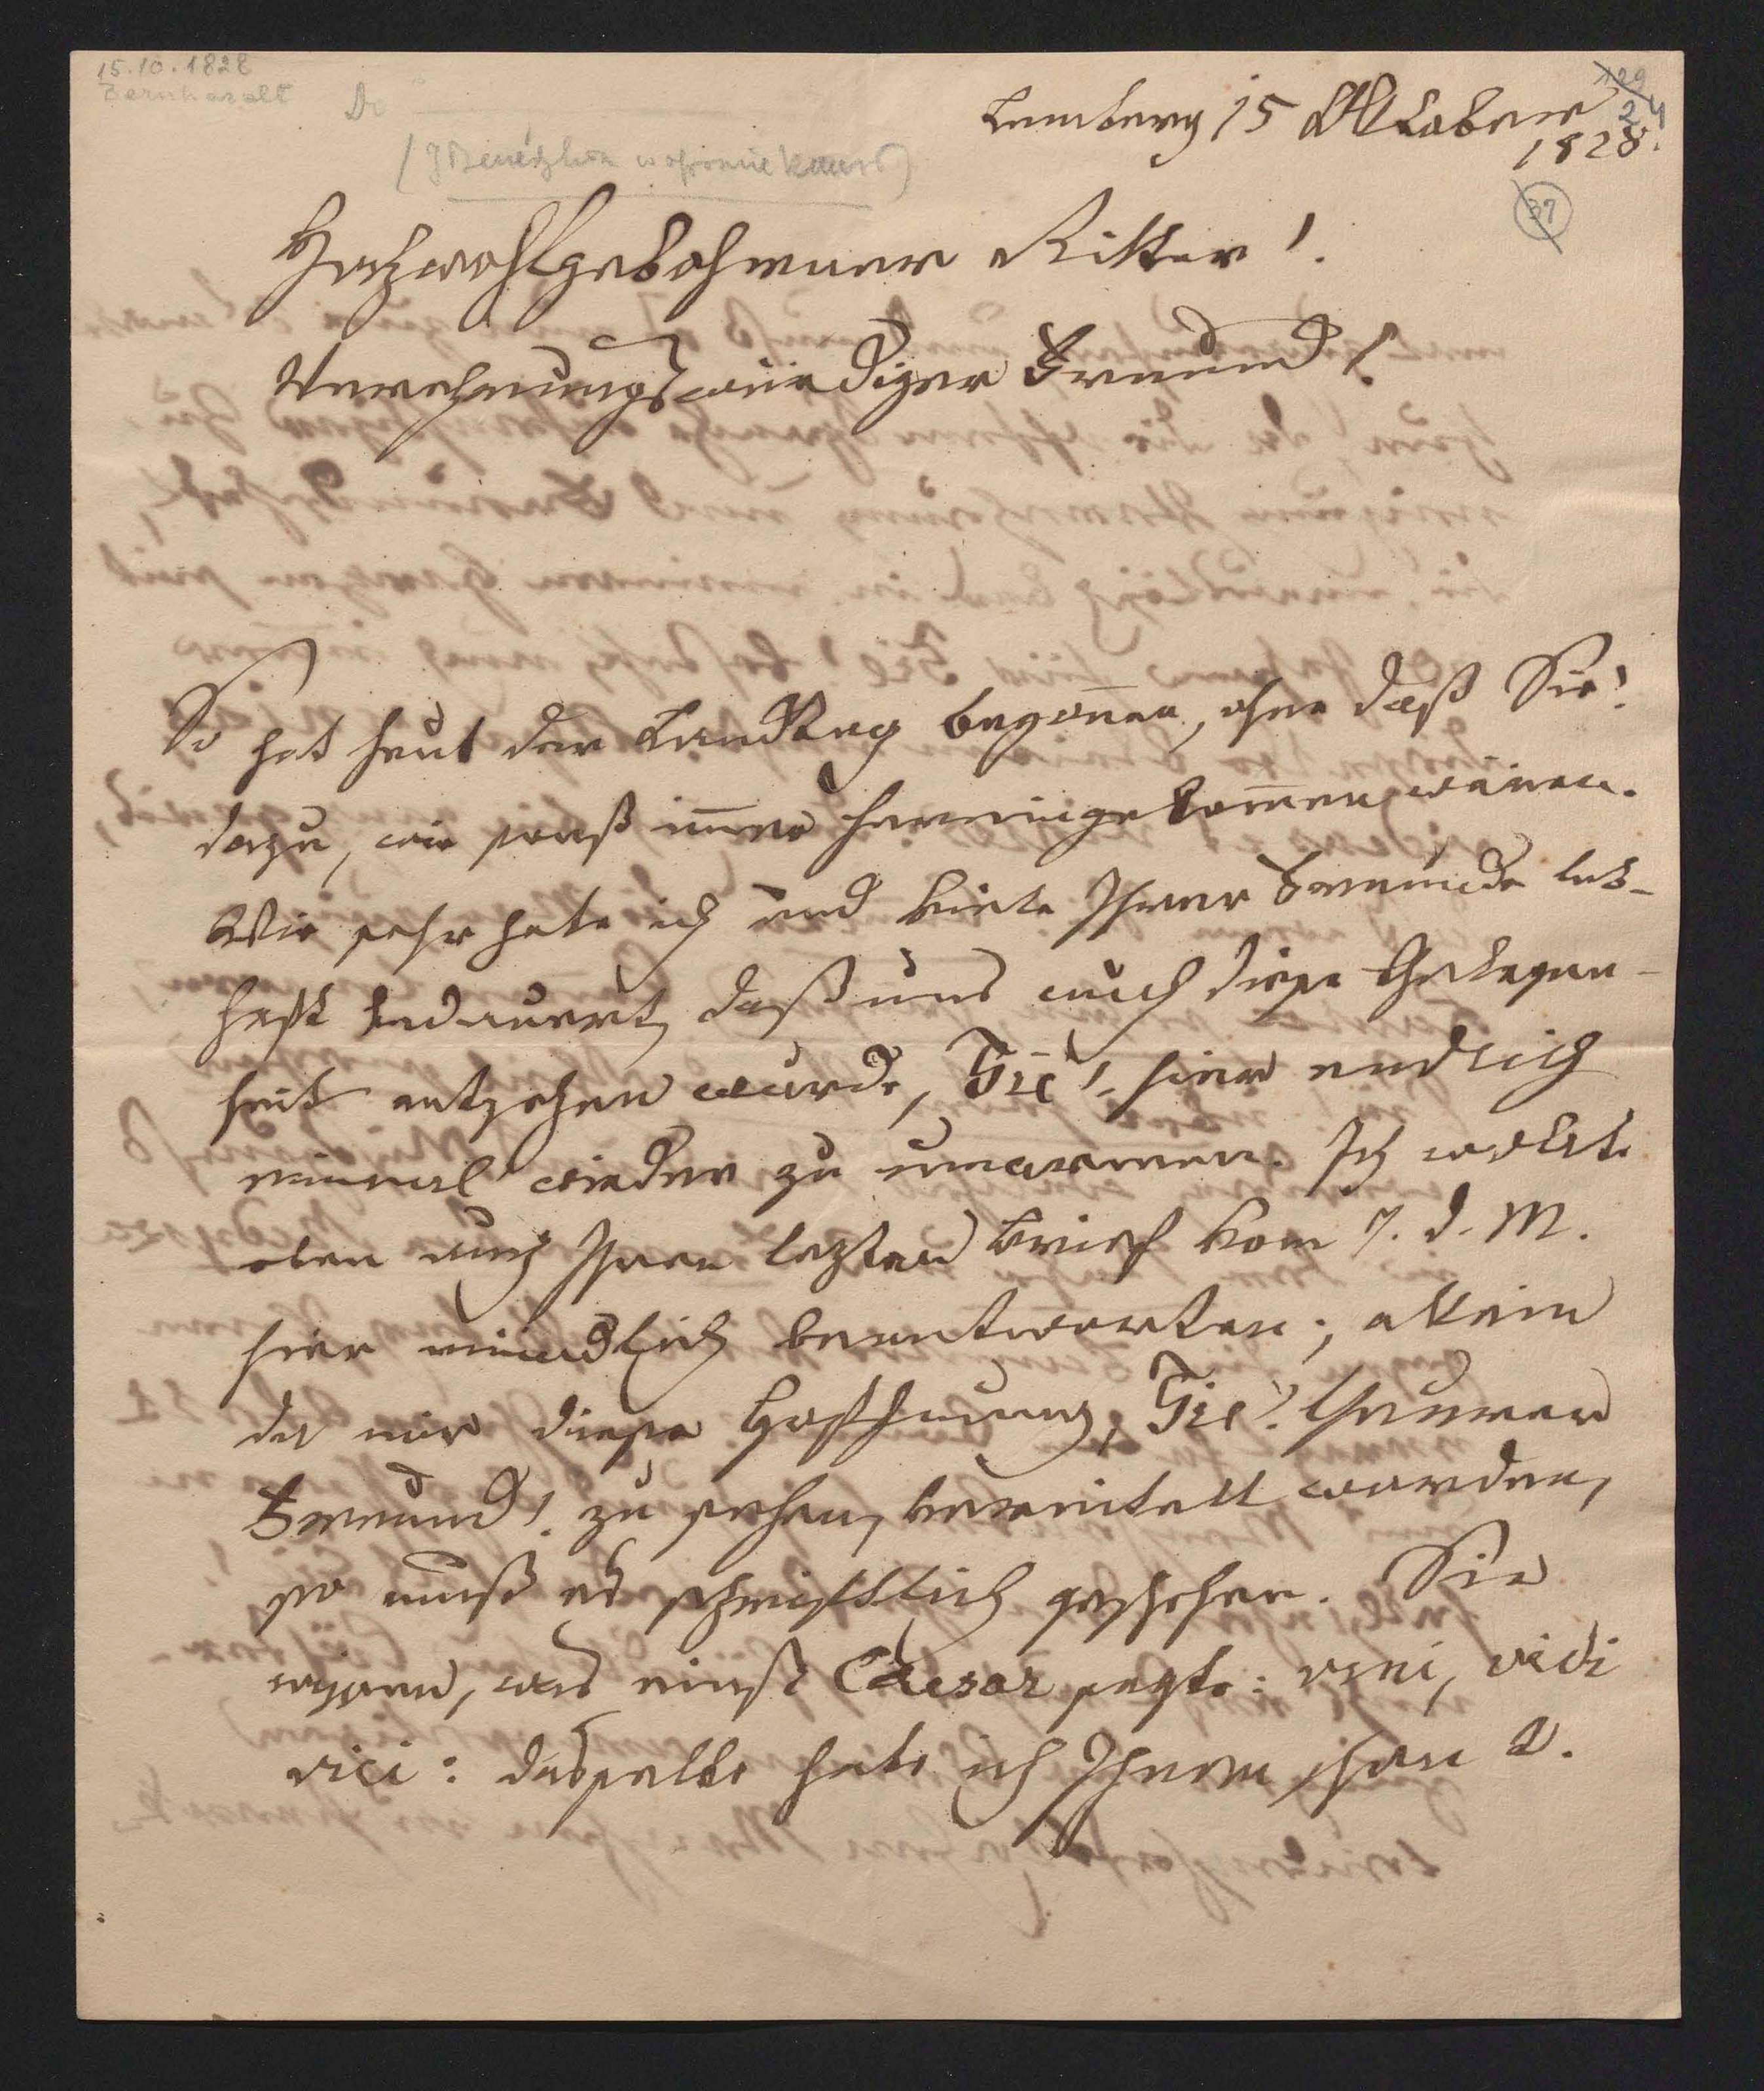 15.10.1828
Bernhardt
Do
129
24
37
Lemberg 15 Oktober
1828.
Hochwohlgebohrener Ritter!
Verehrungswürdiger Freund!
So hat heut der Landtag begon̄en, ohne daß Sie!
dazu, wie sonst im̄er hereingekom̄en wären.
Wie sehr habe ich und viele Ihrer Freunde leb-
haft bedauert, daß uns auch diese Gelegen-
heit entzohen wurde, Sie! hier endlich
einmal wieder zu umarmen. Ich wollte
eben auch Ihren lezten Brief vom 7. d. M.
hier mündlich beantworten; allein
da mir diese Hoffnung, Sie! theuren
Freund! zu sehen, vereitelt worden,
so muß es schriftlich geschehen. Sie
wissen, was einst Caesar sagte: veni, vidi
vici: dasselbe habe ich Ihnen schon d.